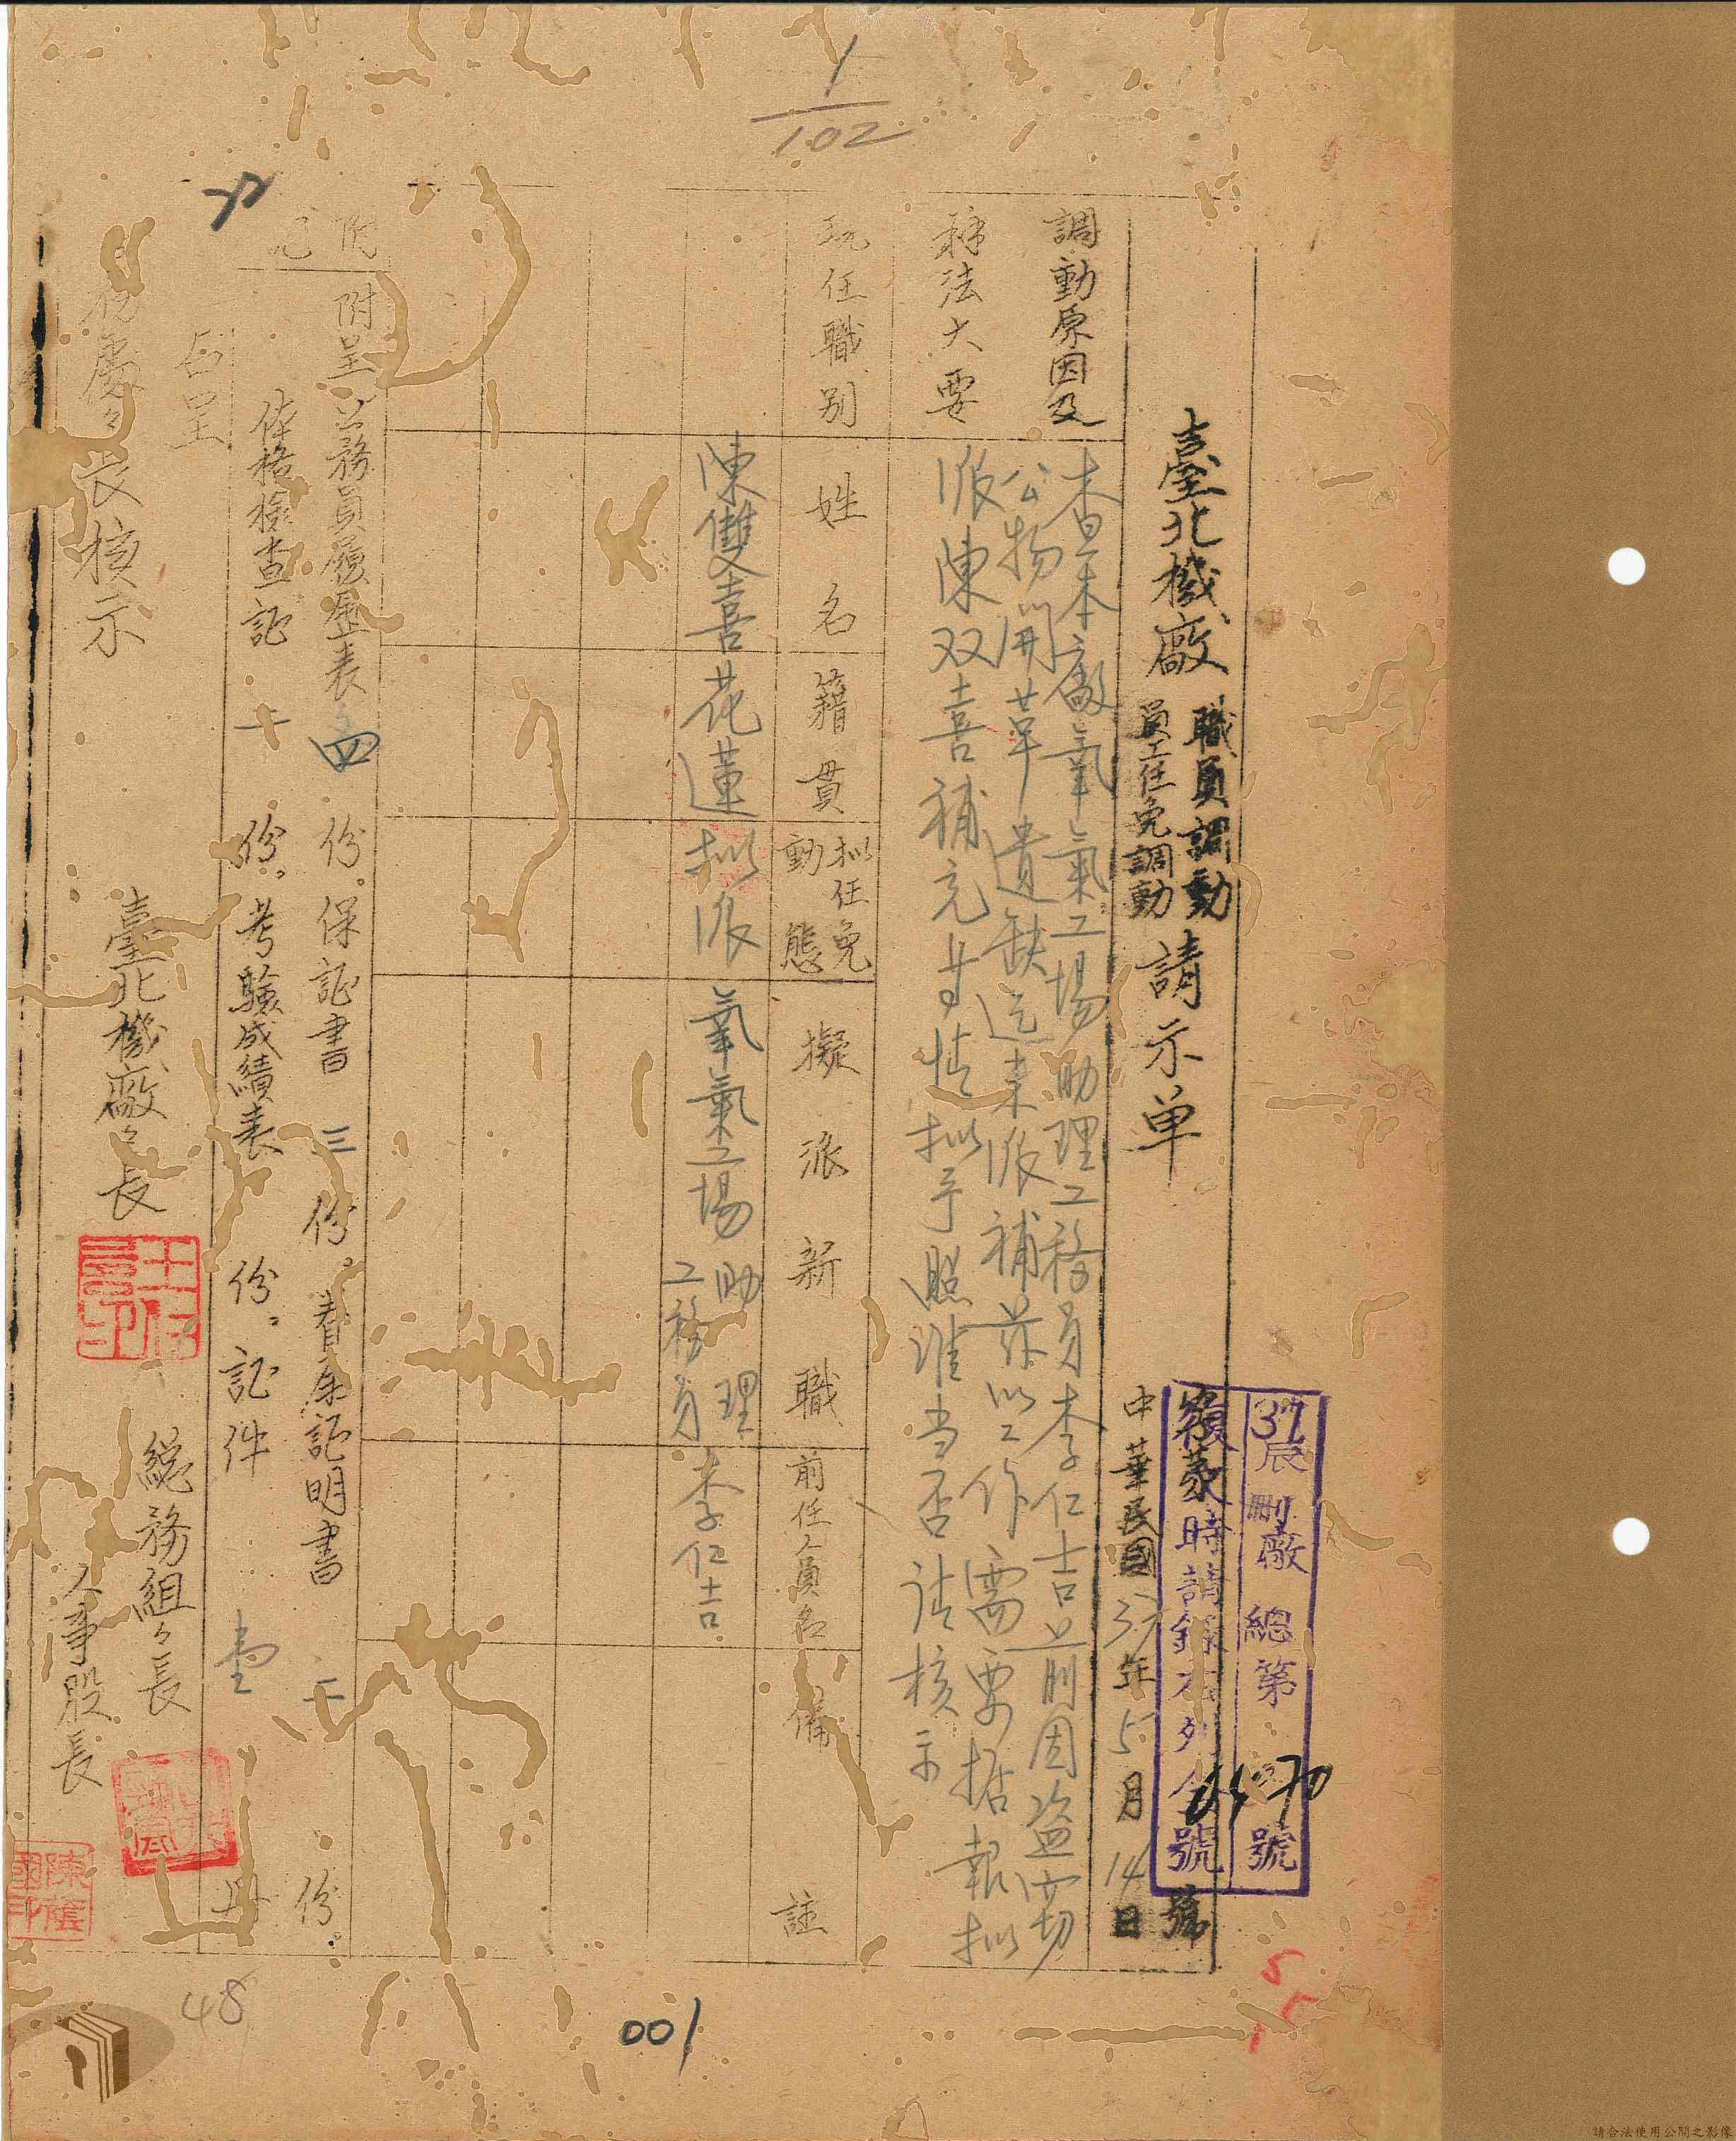 1/102
37辰刪廠總第 號
覆蒙時請錄本列全號
臺北機廠 職員調動 員工任免調動 請示单 號
中華民國37年5月14日
調動原因及辦法大要
查本廠氧氣工場助理工務員李仁吉前因盗窃
公物開革遺缺迄未派補茲以工作需要据報拟
派陳双喜補充等情拟予照准当否請核示
現任職別
姓名
籍貫
拟任免動態
擬派新職
前任人員名
備註
陳雙喜 花蓮 拟派 氧氣工場助理工務員 李仁吉
附記
附呈公務員履歷表四份。保証書三份。着原証明書 份。
体格檢查証 份。考驗成績表 份。証件壹
右呈
處々長核示
臺北機廠々長
總務組々長
人事股長
48
001
請合法使用公開之影像